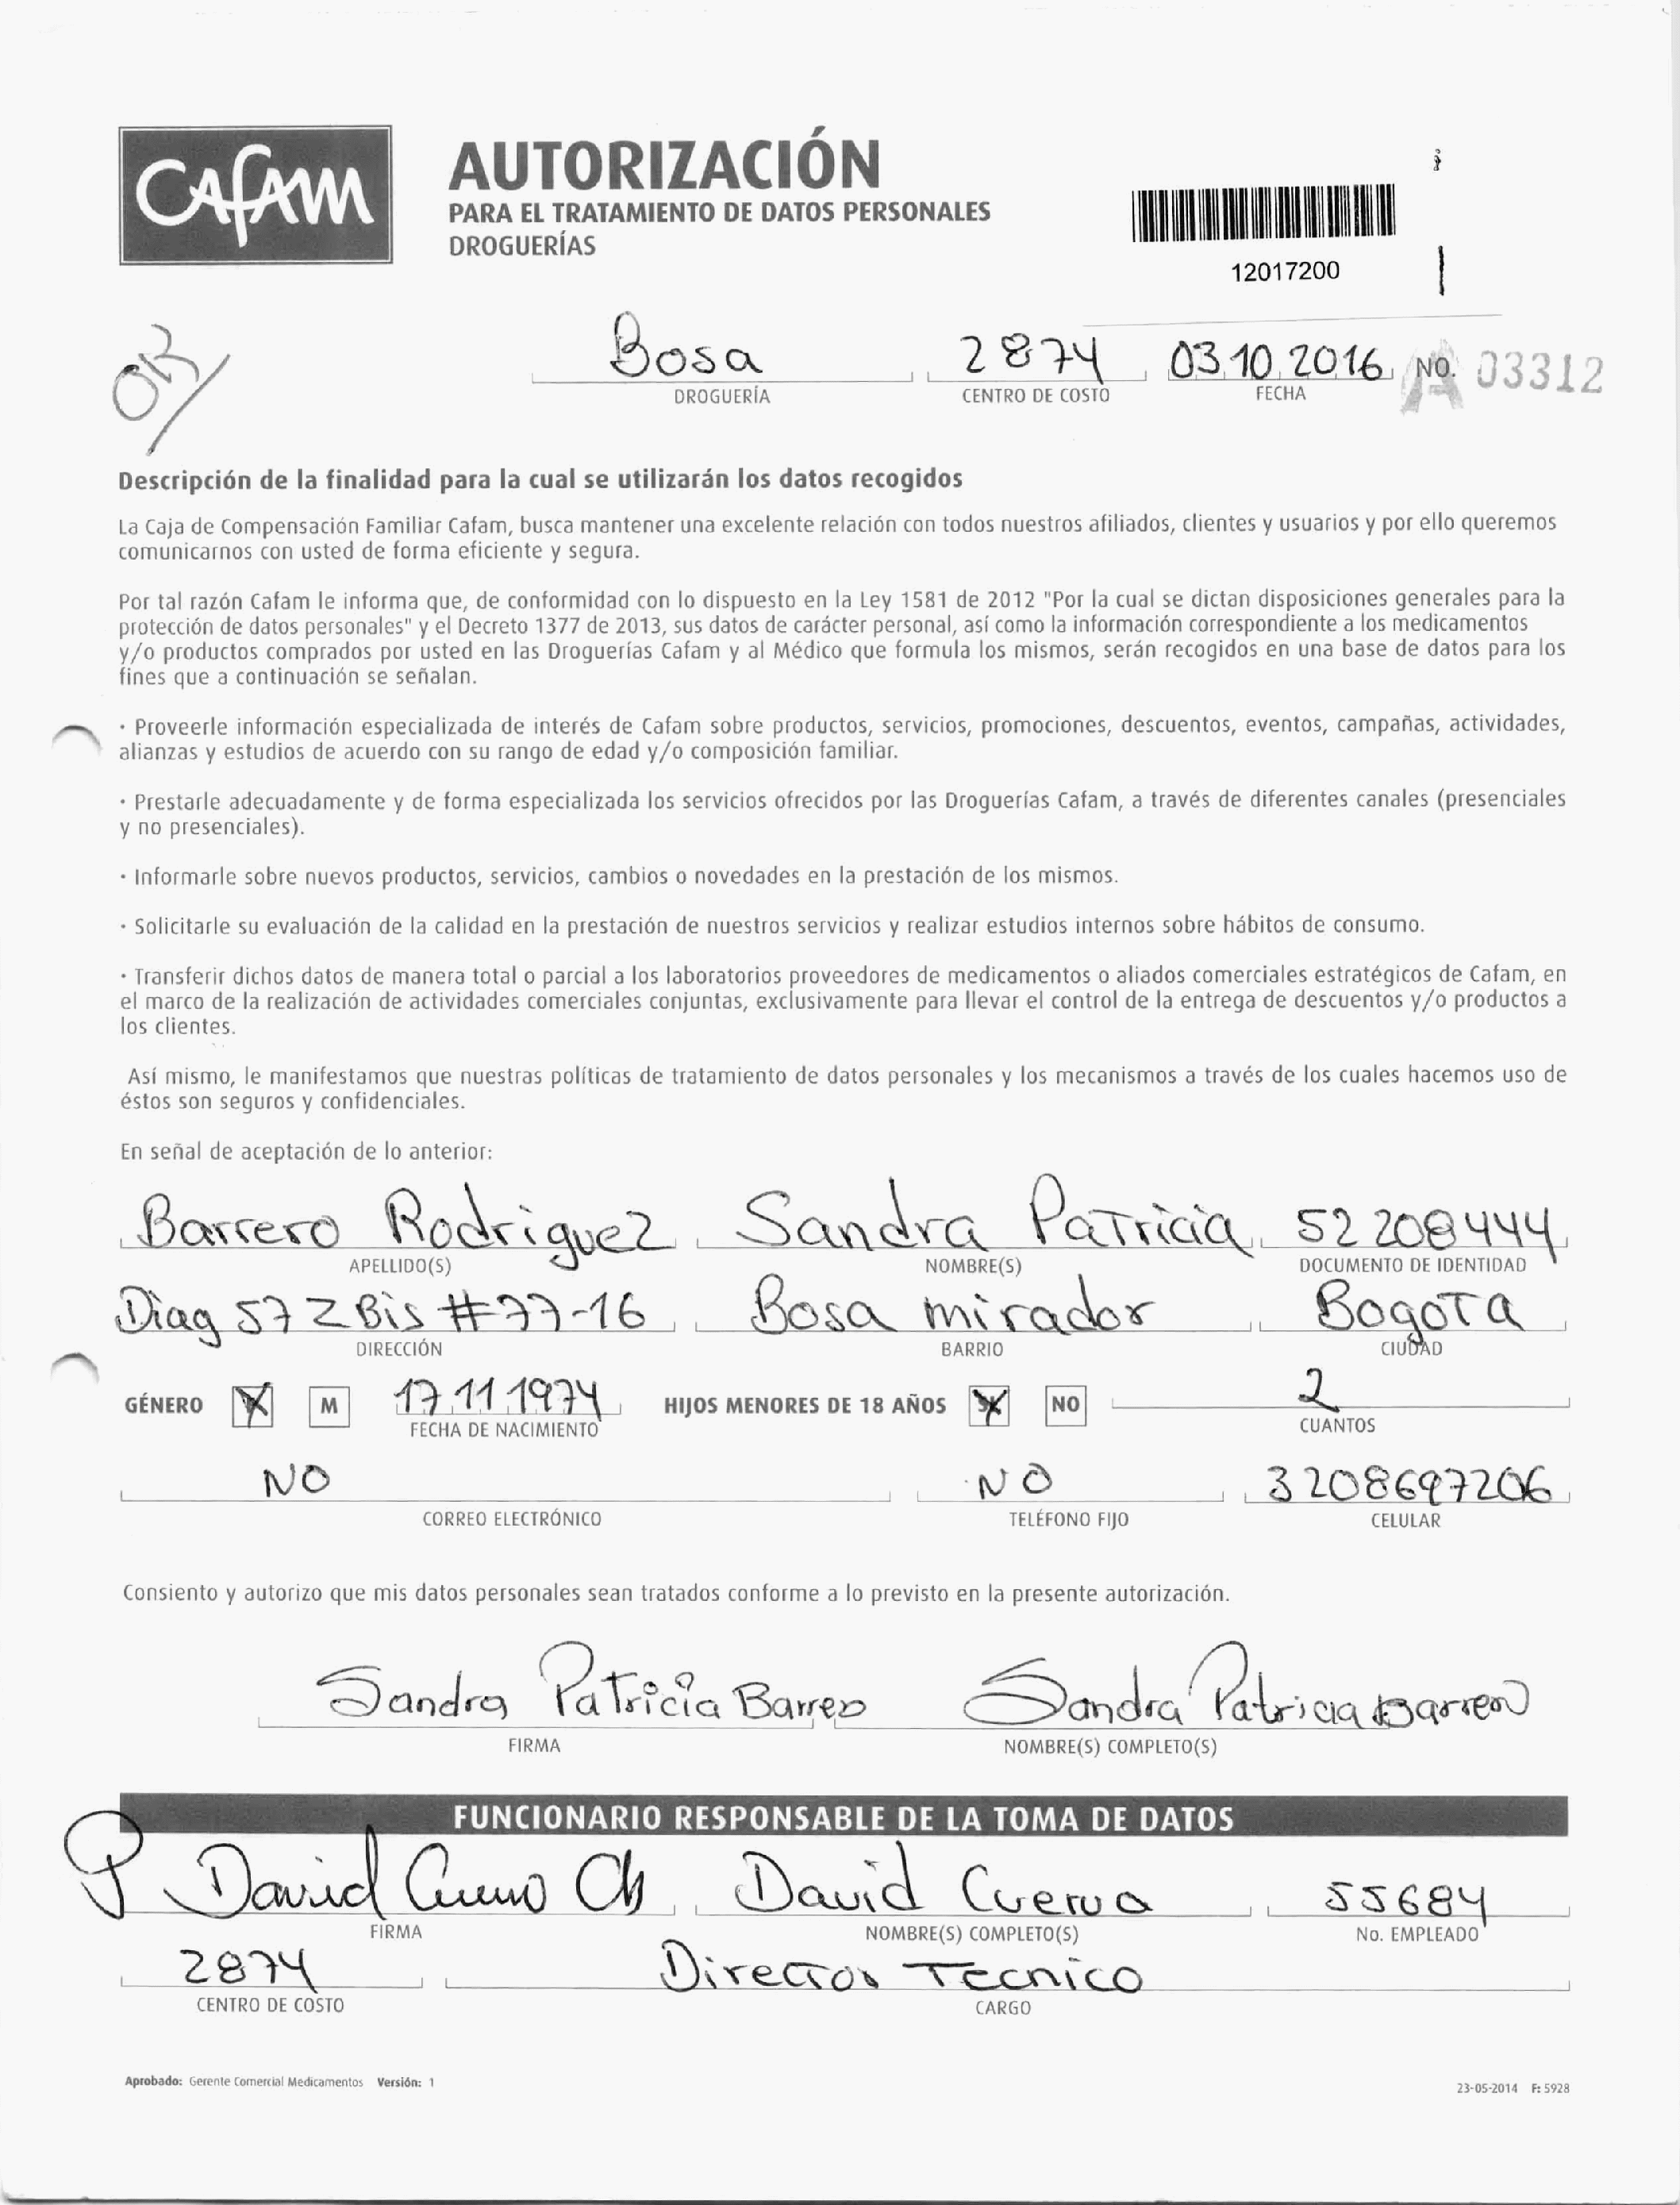 CAFAM
AUTORIZACIÓN
PARA EL TRATAMIENTO DE DATOS PERSONALES
DROGUERÍAS
12017200
013
Bosa 2874 03 10 2016 NO. A 03312
DROGUERÍA CENTRO DE COSTO FECHA
Descripción de la finalidad para la cual se utilizarán los datos recogidos
La Caja de Compensación Familiar Cafam, busca mantener una excelente relación con todos nuestros afiliados, clientes y usuarios y por ello queremos
comunicarnos con usted de forma eficiente y segura.
Por tal razón Cafam le informa que, de conformidad con lo dispuesto en la Ley 1581 de 2012 "Por la cual se dictan disposiciones generales para la
protección de datos personales" y el Decreto 1377 de 2013, sus datos de carácter personal, así como la información correspondiente a los medicamentos
y/o productos comprados por usted en las Droguerías Cafam y al Médico que formula los mismos, serán recogidos en una base de datos para los
fines que a continuación se señalan.
· Proveerle información especializada de interés de Cafam sobre productos, servicios, promociones, descuentos, eventos, campañas, actividades,
alianzas y estudios de acuerdo con su rango de edad y/o composición familiar.
· Prestarle adecuadamente y de forma especializada los servicios ofrecidos por las Droguerías Cafam, a través de diferentes canales (presenciales
y no presenciales).
· Informarle sobre nuevos productos, servicios, cambios o novedades en la prestación de los mismos.
· Solicitarle su evaluación de la calidad en la prestación de nuestros servicios y realizar estudios internos sobre hábitos de consumo.
· Transferir dichos datos de manera total o parcial a los laboratorios proveedores de medicamentos o aliados comerciales estratégicos de Cafam, en
el marco de la realización de actividades comerciales conjuntas, exclusivamente para llevar el control de la entrega de descuentos y/o productos a
los clientes.
Así mismo, le manifestamos que nuestras políticas de tratamiento de datos personales y los mecanismos a través de los cuales hacemos uso de
éstos son seguros y confidenciales.
En señal de aceptación de lo anterior:
Barrero Rodriguez Sandra Patricia 52208444
APELLIDO(S) NOMBRE(S) DOCUMENTO DE IDENTIDAD
Diag 57 Z Bis #77-16 Bosa mirador Bogota
DIRECCIÓN BARRIO CIUDAD
GÉNERO X M 17 11 1974 HIJOS MENORES DE 18 AÑOS X NO 2
FECHA DE NACIMIENTO CUANTOS
NO NO 3208697206
CORREO ELECTRÓNICO TELÉFONO FIJO CELULAR
Consiento y autorizo que mis datos personales sean tratados conforme a lo previsto en la presente autorización.
Sandra Patricia Barrero Sandra Patricia Barrero
FIRMA NOMBRE(S) COMPLETO(S)
FUNCIONARIO RESPONSABLE DE LA TOMA DE DATOS
P David Cuervo Ch David Cuervo 55684
FIRMA NOMBRE(S) COMPLETO(S) No. EMPLEADO
2874 Director Tecnico
CENTRO DE COSTO CARGO
Aprobado: Gerente Comercial Medicamentos Versión: 1 23-05-2014 F: 5928